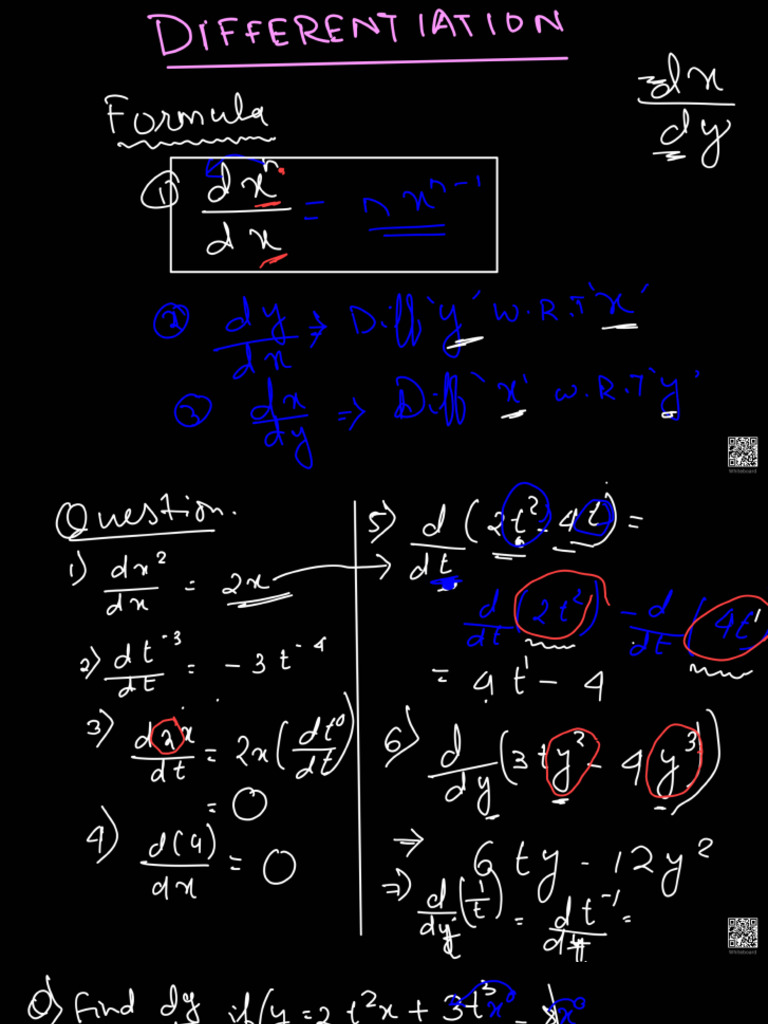 DIFFERENTIATION
dx/dy
Formula
① dxⁿ/dx = n xⁿ⁻¹
② dy/dx ⇒ Diff 'y' W.R.T 'x'
③ dx/dy ⇒ Diff 'x' W.R.T 'y'
Whiteboard
Question.
1) dx²/dx = 2x →
2) dt⁻³/dt = -3t⁻⁴
3) d2x/dt = 2x(dt⁰/dt)
= 0
4) d(4)/dx = 0
5) d/dt (2t² - 4t) =
d/dt (2t²) - d/dt (4t¹)
= 4t¹ - 4
6) d/dy (3ty² - 4y³)
⇒ 6ty - 12y²
⇒) d/dy (1/t) = dt⁻¹/dt =
Whiteboard
Q) Find dy if (y = 2t²x + 3t³x⁰ -